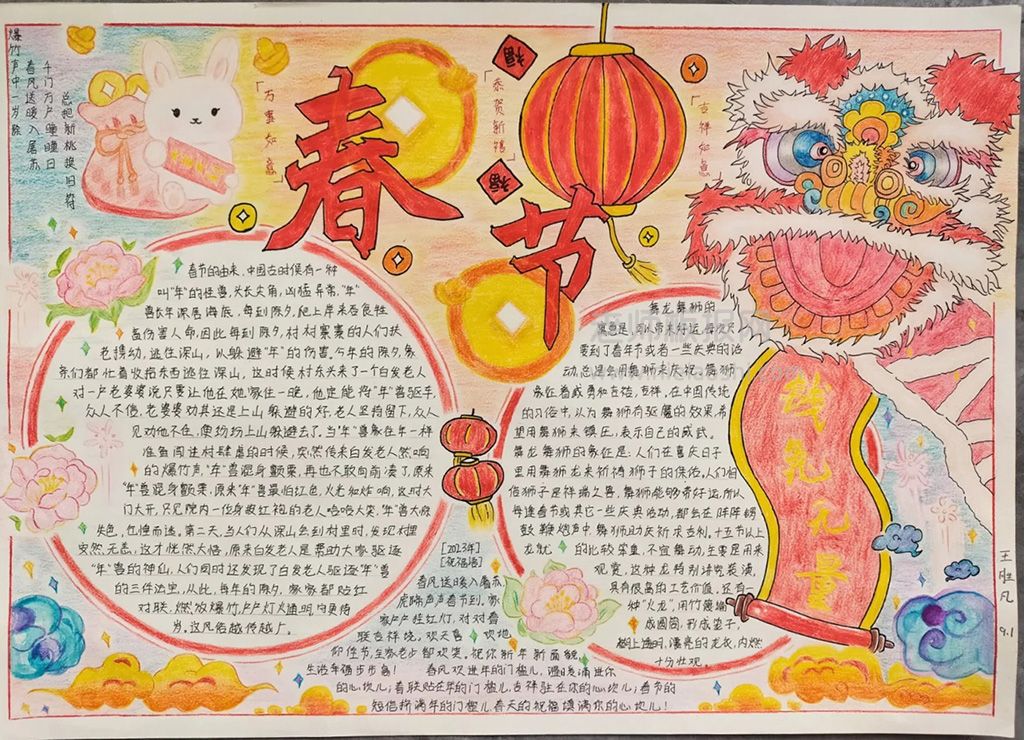 爆竹声中一岁除
春风送暖入屠苏
千门万户曈曈日
总把新桃换旧符
「万事如意」
春节
福
福
「恭贺新禧」
「吉祥如意」
春节的由来,中国古时候有一种
叫"年"的怪兽,头长尖角,凶猛异常,"年"
兽长年深居海底,每到除夕,爬上岸来吞食牲
畜伤害人命,因此每到除夕,村村寨寨的人们扶
老携幼,逃往深山,以躲避"年"的伤害,今年的除夕,乡
亲们都忙着收拾东西逃往深山,这时候村东头来了一个白发老人
对一户老婆婆说只要让他在她家住一晚,他定能将"年"兽驱走,
众人不信,老婆婆劝其还是上山躲避的好,老人坚持留下,众人
见劝他不住,便纷纷上山躲避去了,当"年"兽象往年一样
准备闯进村肆虐的时候,突然传来白发老人燃响
的爆竹声,"年"兽混身颤栗,再也不敢向前凑了,原来
"年"兽混身颤栗,原来"年"兽最怕红色,火光和炸响,这时大
门大开,只见院内一位身披红袍的老人哈哈大笑,"年"兽大惊
失色,仓惶而逃。第二天,当人们从深山回到村里时,发现村里
安然无恙,这才恍然大悟,原来白发老人是帮助大家驱逐
"年"兽的神仙,人们同时还发现了白发老人驱逐"年"兽
的三件法宝,从此,每年的除夕,家家都贴红
对联,燃放爆竹,户户灯火通明,守更待
岁。这风俗越传越广。
[2023年]
[祝福语]
春风送暖入屠苏,
虎啸声声春节到。家
家户户挂红灯,对对春
联吉祥绕。欢天喜 欢地
迎佳节,全家老少都欢笑。祝你新年新面貌,
生活幸福步步高! 春风吹进年的门槛儿,温暖涌进你
的心坎儿;春联贴在年的门槛儿,吉祥驻在你的心坎儿;春节的
短信挤满年的门槛儿,春天的祝福填满你的心坎儿!
舞龙舞狮的
寓意是:可以带来好运,每次只
要到了春年节或者一些庆典的活
动,总是会用舞狮来庆祝,舞狮
象征着威勇和吉祥,在中国传统
的习俗中,认为舞狮有驱魔的效果,希
望用舞狮来镇压,表示自己的威武。
舞龙舞狮的象征是:人们在喜庆日子
里用舞狮龙来祈祷狮子的保佑,人们相
信狮子是祥瑞之兽,舞狮能够带好运,所以
每逢春节或其它一些庆典活动,都会在阵阵锣
鼓鞭炮声中,舞狮助庆祈求吉利。十五节以上
龙就 的比较笨重,不宜舞动,主要是用来
观赏,这种龙特别讲究装潢,
具有很高的工艺价值,还有
种"火龙",用竹篾编
成圆筒,形成笼子,
糊上透明,漂亮的龙衣,内燃
十分壮观。
钱兔无量
王胜凡
9.1